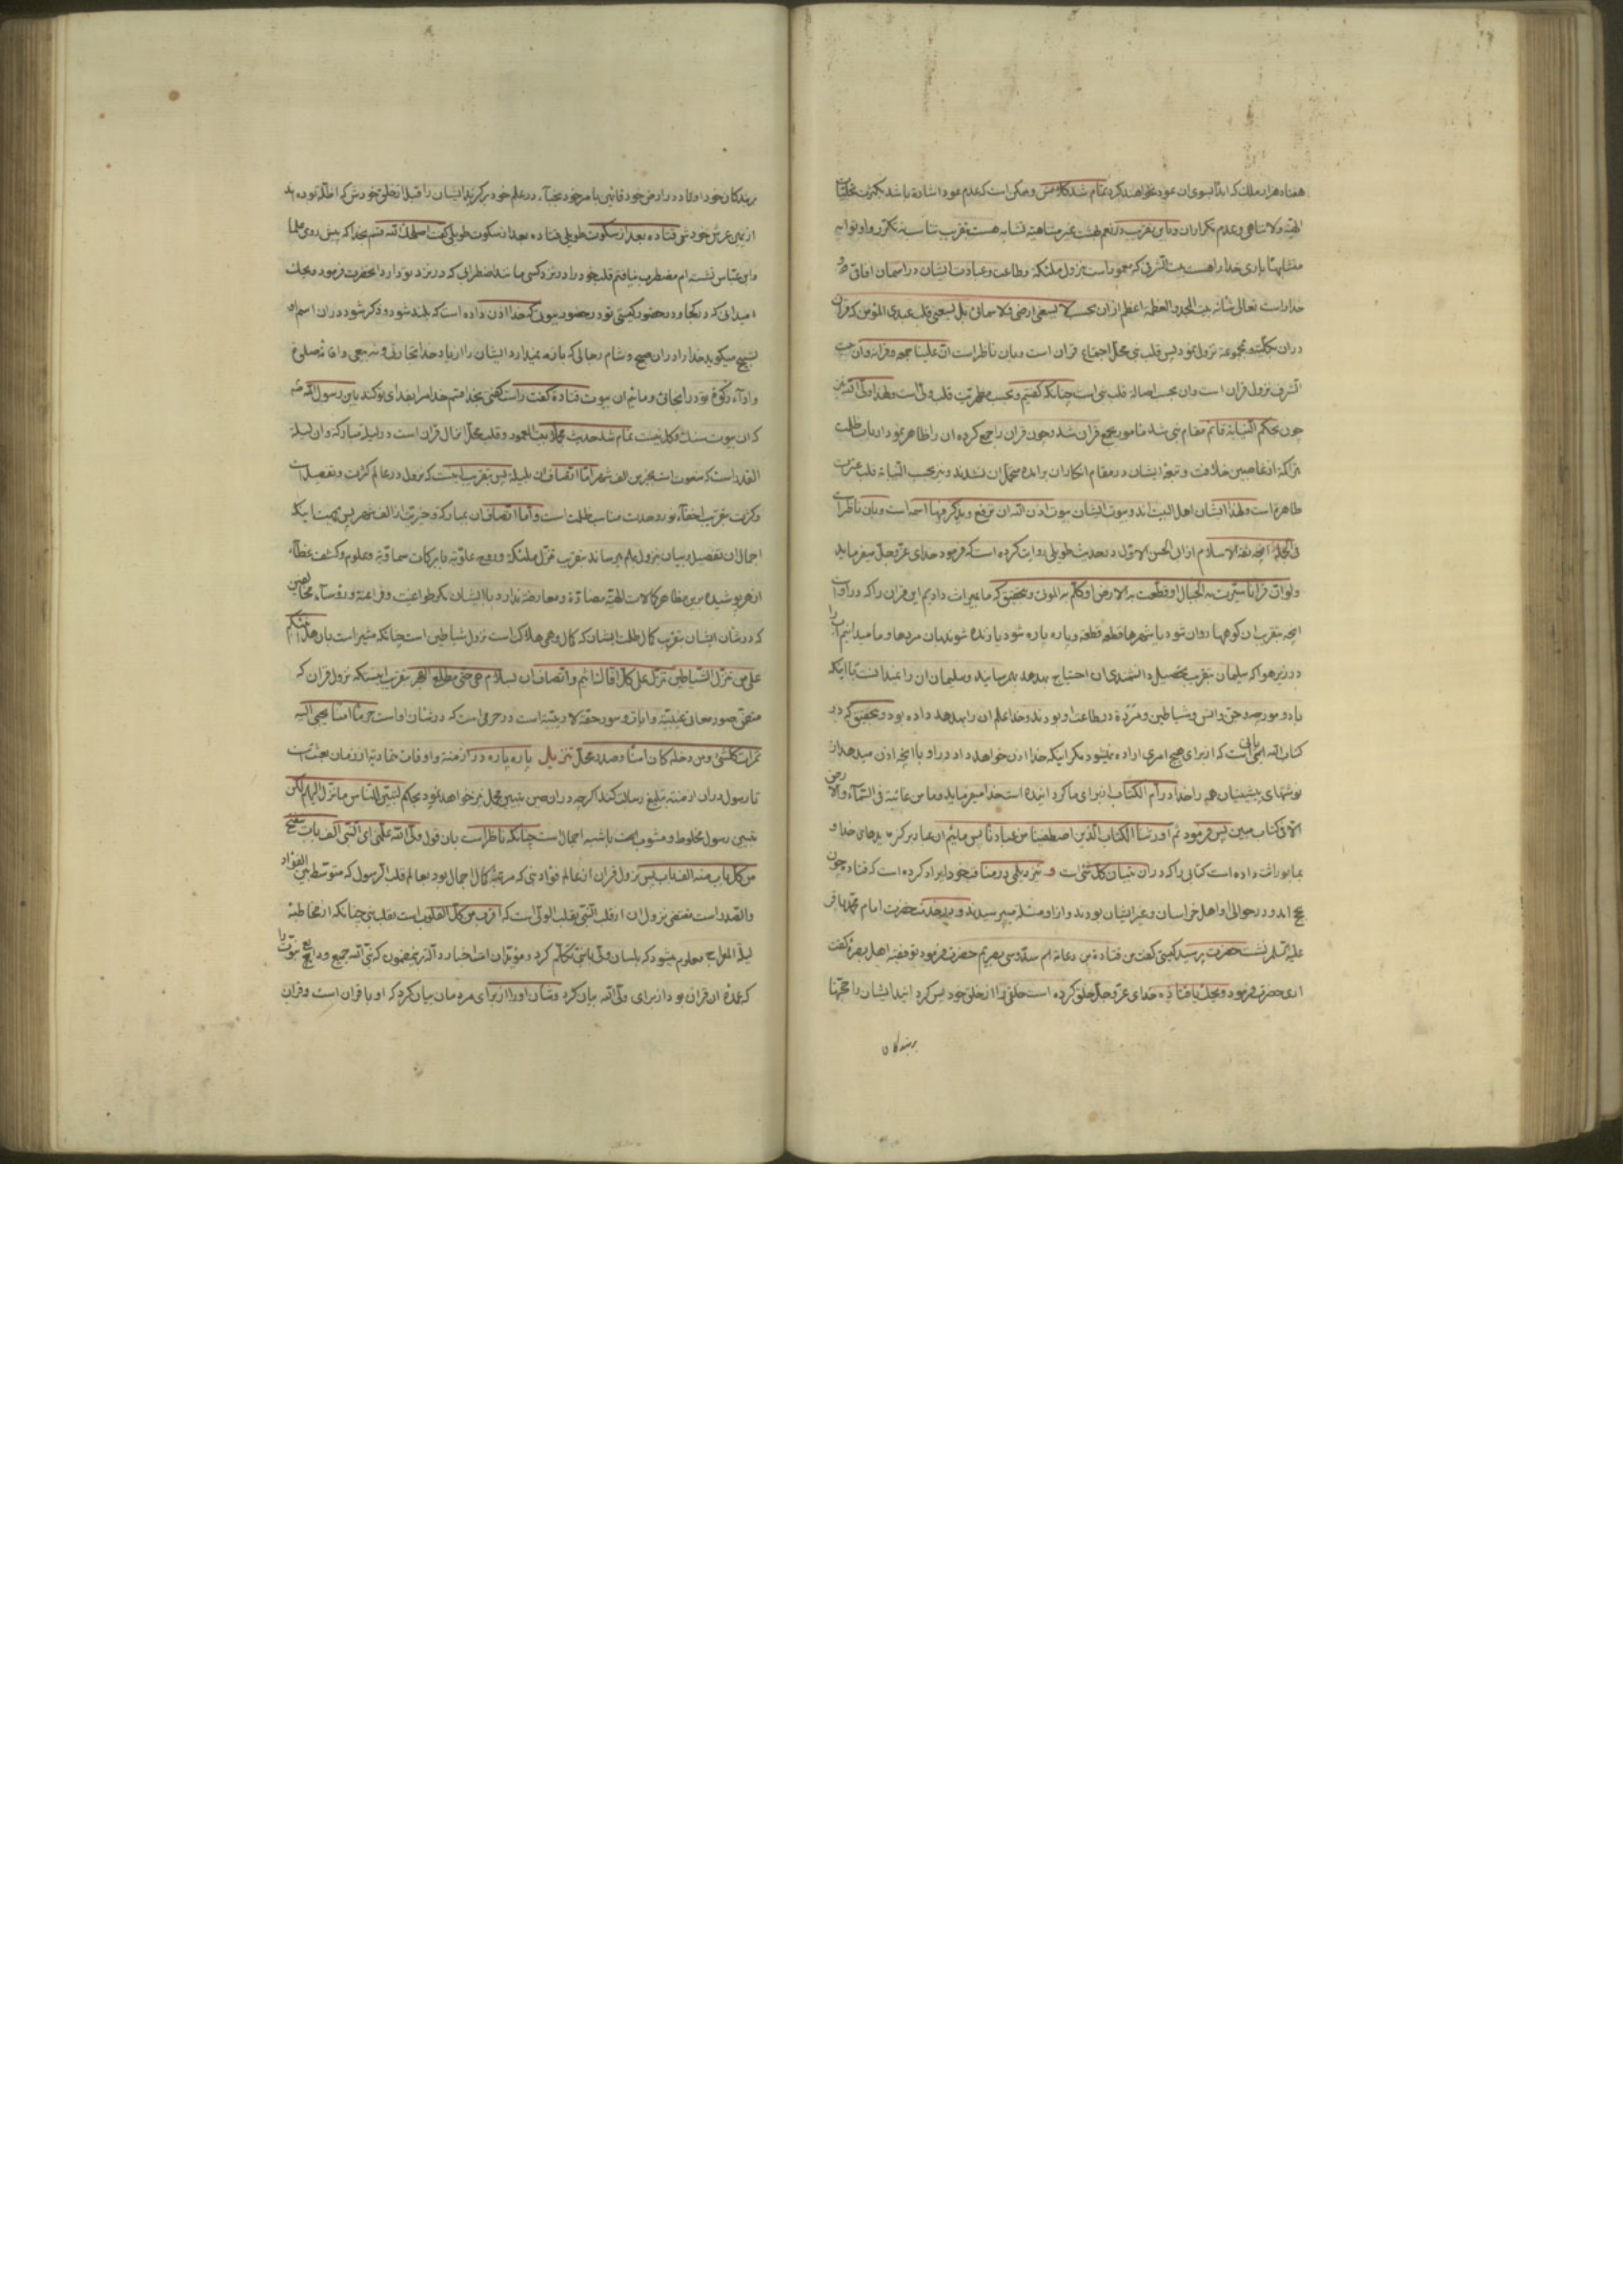 هفتاد هزار ملك كه ابدًا بسوى ان عود نخواهند كرد تمام شد كلامش و ممكن است كه عدم عود اشاره باشد بكثرت تجلّيات
الهيّه ولاتناهى وعدم تكرار ان
متشابهًا بارى خدا را هست بيت اشرفى كه معمور است بنزول ملئكه وطاعت وعبادت ايشان در اسمان افاق و
خدا راست تعالى شانه بيت المجد والعظمة اعظم از ان بحسب لا يسعنى ارضى ولا سمائى بل يسعنى قلب عبدى المؤمن كه قران
دران بكليّته ومجموعه نزول نمود پس قلب نبى محلّ اجتماع قران است وبان ناظر است انّ علينا جمعه وقرانه وان بيت
اشرف نزول قران است وان بحسب اصالة قلب نبى است چنانكه كفتيم وبحسب مظهريّت قلب ولى است ولهذا ولى الله نيز
چون بحكم النيابة قائم مقام نبى شد مامور بجمع قران شد وچون قران را جمع كرده ان را ظاهر نمود ارباب ظلمت
انرا كه از غاصبين خلافت وتبعه ايشان در مقام انكار ان برامده متحمل ان نشدند ونيز بحسب النيابة قلب عترت
طاهره است ولهذا ايشان اهل البيت اند وبيوت ايشان بيوت اذن الله ان ترفع ويذكر فيها اسمه است وبان ناظر است
فى الجمله انچه ثقة الاسلام از ابى الحسن الاوّل در حديث طويلى روايت كرده است كه فرمود خداى عزّ وجلّ ميفرمايد
ولو انّ قرانًا سيّرت به الجبال او قطّعت به الارض او كلّم به الموتى وبتحقيق كه ما بميراث داديم اين قران را كه در او است
انچه بتقريب ان كوهها روان شود يا شهرها قطعه قطعه وپاره پاره شود يا زنده شوند بان مردها وما ميدانيم اب را
در زير هوا كه سليمان بتقريب تحصيل دانشمندى ان احتياج بهدهد بهم رسانيد وسليمان ان را نميدانست با اينكه
باد ومورچه وجنّ وانس وشياطين ومرده در طاعت او بودند وخدا علم ان را بهدهد داده بود وبتحقيق كه در
كتاب الله اياتى است كه از براى هيچ امرى اراده نميشود مكر اينكه خدا اذن خواهد داد در او با انچه اذن ميدهد از
نوشتهاى پيشينيان همه را خدا در امّ الكتاب از براى ما كردانيده است خدا ميفرمايد وما من غائبة فى السّمآء والارض
الّا فى كتاب مبين پس فرمود ثم اورثنا الكتاب الّذين اصطفينا من عبادنا پس مائيم ان عباد بركزيدهاى خدا و
بما بوراثت داده است كتابى را كه دران تبيان كلّ شىء است و نيز ديلمى در مناقب خود ايراد كرده است كه قتاده چون
بحج امد ودر حوالى او اهل خراسان وغير ايشان بودند واز او مسئله ميپرسيدند وبخدمت حضرت امام محمّد باقر
عليه السّلم نشست حضرت پرسيد كيستى كفت من قتادة بن دعامه ام سدّوسى بصريم حضرت فرمود تو فقيه اهل بصره كفت
ارى حضرت فرمود ويحك يا قتاده خداى عزّ وجلّ خلق كرده است خلقى را از خلق خود پس كردانيد ايشان را حجّتها
بر بندكان
بر بندكان خود اوتاد در ارض خود قائمين بامر خود نجبآء در علم خود بركزيد ايشان را قبل از خلق خودش كه اظلّه بوده اند
از يمين عرش خود پس قتاده بعد از سكوت طويلى قتاده بعد از سكوت طويلى كفت اصلحك الله قسم بخدا كه پيش روى علما
وابن عبّاس نشسته ام مضطرب نيافتم قلب خود را در نزد كسى مانند اضطرابى كه در نزد تو دارد انحضرت فرمود ويحك
ميدانى كه در كجا ودر حضور كيستى تو در حضور بيوتى كه خدا اذن داده است كه بلند شود وذكر شود دران اسم او
تسبيح ميكويد خدا را دران صبح وشام رجالى كه باز نميدارد ايشان را از ياد خدا تجارتى ونه بيعى واقامه صلوة
وادآء زكوة تو در انجائى وما ئيم ان بيوت قتادة كفت راست كفتى بخدا قسم خدا مرا بفداى تو كند يابن رسول الله
كه ان بيوت سنك وكل نيست تمام شد حديث بيت المعمور وقلب محلّ انزال قران است در ليله مباركه وان ليلة
القدر است كه منعوت است بخير من الف شهر امّا اتّصاف ان بليلة پس بتقريب انست كه نزول در عالم كثرت وتفصيل است
وكثرت بتقريب اخفآء نور وحدت مناسب ظلمت است وامّا اتّصاف ان بمباركه وخيريّت از الف شهر پس بجهت اينكه
اجمال ان تفصيل وبيان بنزول بهم ميرساند بتقريب تنزّل ملئكه وروح علويّه بابركات سماويّه وعلوم وكشف غطآء
از هر پوشيده پس مظاهر كمالات الهيّه مضادّة ومعارضه ندارد با ايشان مكر طواغيت وفراعنه ورؤسآء مخالفين
كه در شان ايشان بتقريب كمال ظلمت ايشان كه كمال وهمى هلاك است نزول شياطين است چنانكه مشير است بان هل انبّئكم
على من تنزّل الشّياطين تنزّل على كلّ افّاك اثيم واتّصاف ان بسلام هى حتى مطلع الفجر بتقريب اينستكه نزول قران كه
متضمّن صور معانى غيبيّه وايات وسور حقّه لا ريبيّه است در حرمى است كه در شان او است حرمًا امنًا يجبى اليه
ثمرات كلّ شىء ومن دخله كان امنًا وصدد محلّ تنزيل پاره پاره در ازمنه واوقات متماديه از زمان بعثت است
تا رسول دران ازمنه تبليغ رسالت كند اكرچه دران حين تبيين مجمل نيز خواهد بود بحكم لتبيّن للنّاس ما نزّل اليهم لكن
تبيين رسول مخلوط ومشوب است باشبه اجمال است چنانكه ناظر است بان قول ولى الله علّمنى اى النّبى الف باب ينفتح
من كلّ باب منه الف باب پس نزول قران از عالم فؤاد نبى كه مرتبه كمال اجمال بود بعالم قلب الرّسول كه متوسّط بين الفؤاد
والصّدر است مقتضى نزول ان از قلب النّبى بقلب الولى است كه اقرب من كلّ القلوب است بقلب نبى چنانكه از مخاطبه
ليلة المعراج معلوم ميشود كه بلسان ولى با نبى تكلّم كرد ومؤيّد ان است اخبار دالّه بر مضمون كه نبى الله جميع ودايع نبوّت را
كه عمده ان قران بود از براى ولى الله بيان كرد وشان او را از براى مردمان بيان كرد كه او با قران است وقران